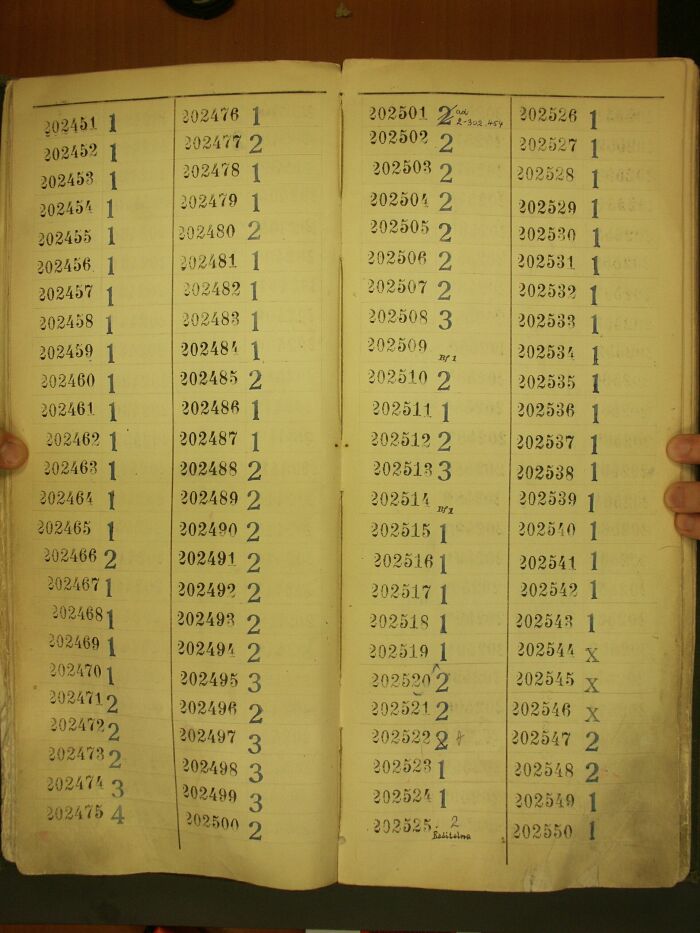 202451 1
202452 1
202453 1
202454 1
202455 1
202456 1
202457 1
202458 1
202459 1
202460 1
202461 1
202462 1
202463 1
202464 1
202465 1
202466 2
202467 1
202468 1
202469 1
202470 1
202471 2
202472 2
202473 2
202474 3
202475 4
202476 1
202477 2
202478 1
202479 1
202480 2
202481 1
202482 1
202483 1
202484 1
202485 2
202486 1
202487 1
202488 2
202489 2
202490 2
202491 2
202492 2
202493 2
202494 2
202495 3
202496 2
202497 3
202498 3
202499 3
202500 2
202501 2 ad
2-302.454
202502 2
202503 2
202504 2
202505 2
202506 2
202507 2
202508 3
202509
Bf 1
202510 2
202511 1
202512 2
202513 3
202514
Bf 1
202515 1
202516 1
202517 1
202518 1
202519 1
202520 2
202521 2
202522 2
202523 1
202524 1
202525. 2
202526 1
202527 1
202528 1
202529 1
202530 1
202531 1
202532 1
202533 1
202534 1
202535 1
202536 1
202537 1
202538 1
202539 1
202540 1
202541 1
202542 1
202543 1
202544 x
202545 x
202546 x
202547 2
202548 2
202549 1
202550 1